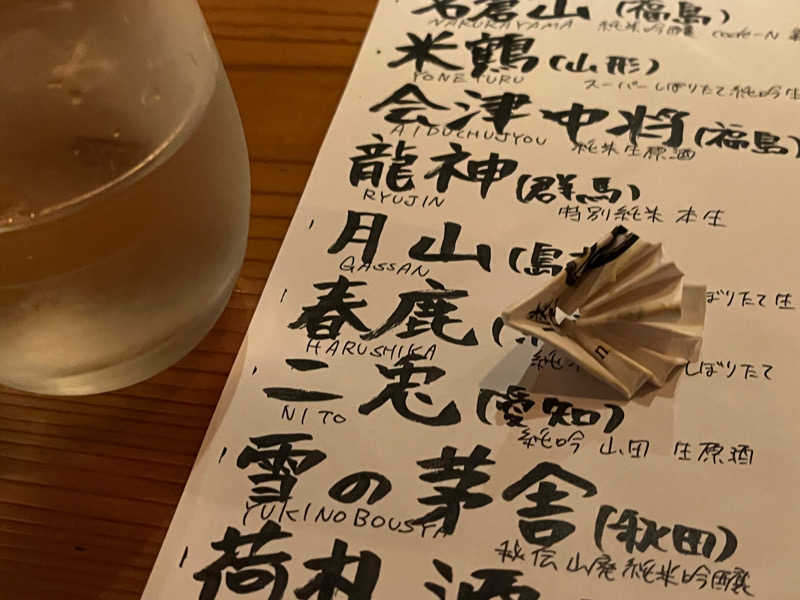 名倉山(福島)
NAKURAYAMA 純米吟醸 code-N
米鶴(山形)
YONETURU スーパーしぼりたて純吟生
会津中将(福島)
AIDUCHUJYOU 純米生原酒
龍神(群馬)
RYUJIN 特別純米 本生
月山(島
GASSAN ぼりたて生
春鹿(
HARUSHIKA 純 しぼりたて
二兎(愛知)
NITO 純吟 山田 生原酒
雪の茅舎(秋田)
YUKINOBOUSYA 秘伝山廃純米吟醸
荷札酒